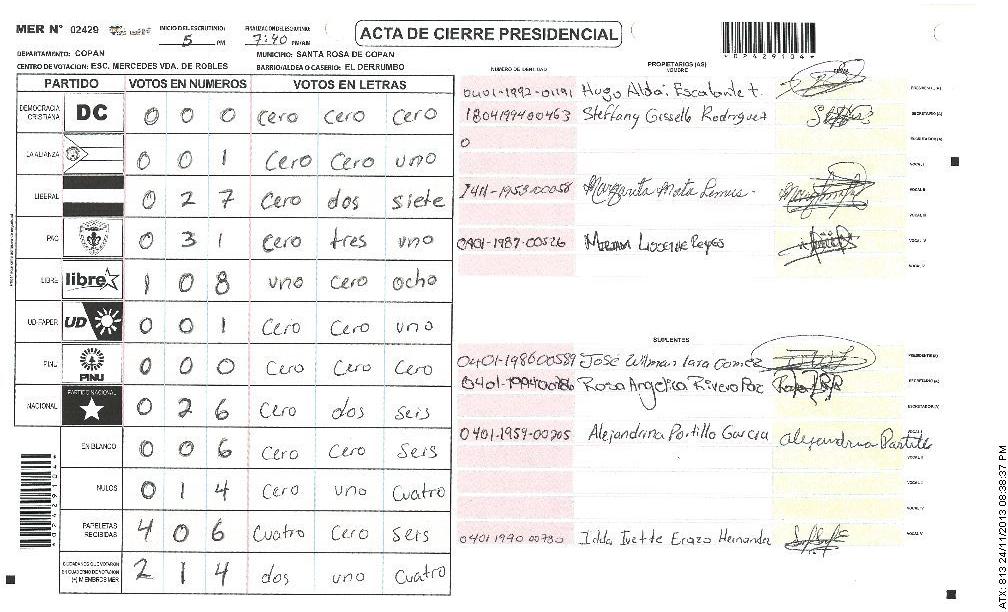 MER N° 02429 INICIO DEL ESCRUTINIO: 5 PM FINALIZACION DEL ESCRUTINIO: 7:40 PM/AM
ACTA DE CIERRE PRESIDENCIAL
*02429104*
DEPARTAMENTO: COPAN MUNICIPIO: SANTA ROSA DE COPAN
CENTRO DE VOTACION: ESC. MERCEDES VDA. DE ROBLES BARRIO/ALDEA O CASERIO: EL DERRUMBO
PARTIDO VOTOS EN NUMEROS VOTOS EN LETRAS
DEMOCRACIA CRISTIANA DC 0 0 0 Cero Cero Cero
LA ALIANZA 0 0 1 Cero Cero uno
LIBERAL 0 2 7 Cero dos siete
PAC 0 3 1 Cero tres uno
LIBRE libre 1 0 8 uno Cero ocho
UD-FAPER UD 0 0 1 Cero Cero uno
PINU PINU 0 0 0 Cero Cero Cero
NACIONAL PARTIDO NACIONAL 0 2 6 Cero dos Seis
EN BLANCO 0 0 6 Cero Cero Seis
NULOS 0 1 4 Cero uno Cuatro
PAPELETAS RECIBIDAS 4 0 6 Cuatro Cero seis
CIUDADANOS QUE VOTARON EN CUADERNO DE VOTACION (+) MIEMBROS MER 2 1 4 dos uno Cuatro
NUMERO DE IDENTIDAD PROPIETARIOS (AS) NOMBRE FIRMA
0401-1992-01191 Hugo Aldai Escalante t. PRESIDENTE (A)
1804199400463 Steffany Gisselle Rodriguez SECRETARIO (A)
0 ESCRUTADOR (A)
VOCAL I
1411-1953-00056 Margarita Mata Lemus VOCAL II
VOCAL III
0401-1987-00526 Miriam Reyes VOCAL IV
VOCAL V
SUPLENTES
0401-198600589 José Wilman Lara Gomez PRESIDENTE (A)
0401-1994-00786 Rosa Angelica Rivera Paz SECRETARIO (A)
ESCRUTADOR (A)
0401-1959-00205 Alejandrina Portillo Garcia alejandrina Portillo VOCAL I
VOCAL II
VOCAL III
VOCAL IV
0401 1990 00730 Ilda Ivette Erazo Hernandez VOCAL V
*02429104*
ATX: 813 24/11/2013 08:38:37 PM